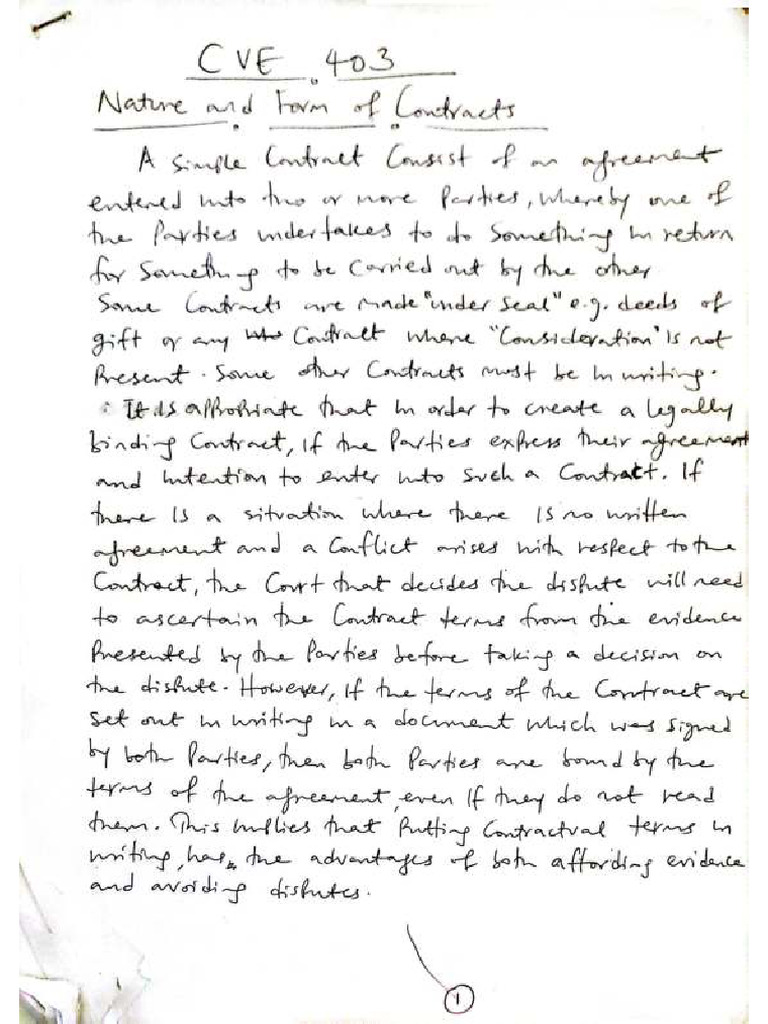 CVE 403
Nature and Form of Contracts
A simple Contract Consist of an agreement
entered into two or more Parties, whereby one of
the Parties undertakes to do Something in return
for Something to be Carried out by the other
Some Contracts are made "under Seal" e.g. deeds of
gift or any Contract where "Consideration" is not
Present. Some other Contracts must be in writing.
It is approriate that in order to create a legally
binding Contract, if the Parties express their agreement
and intention to enter into such a Contract. If
there is a situation where there is no written
agreement and a Conflict arises with respect to the
Contract, the Court that decides the dispute will need
to ascertain the Contract terms from the evidence
Presented by the Parties before taking a decision on
the dispute. However, if the terms of the Contract are
set out in writing in a document which was signed
by both Parties, then both Parties are bound by the
terms of the agreement, even if they do not read
them. This implies that Putting Contractual terms in
writing, has the advantages of both affording evidence
and avoiding disputes.
1